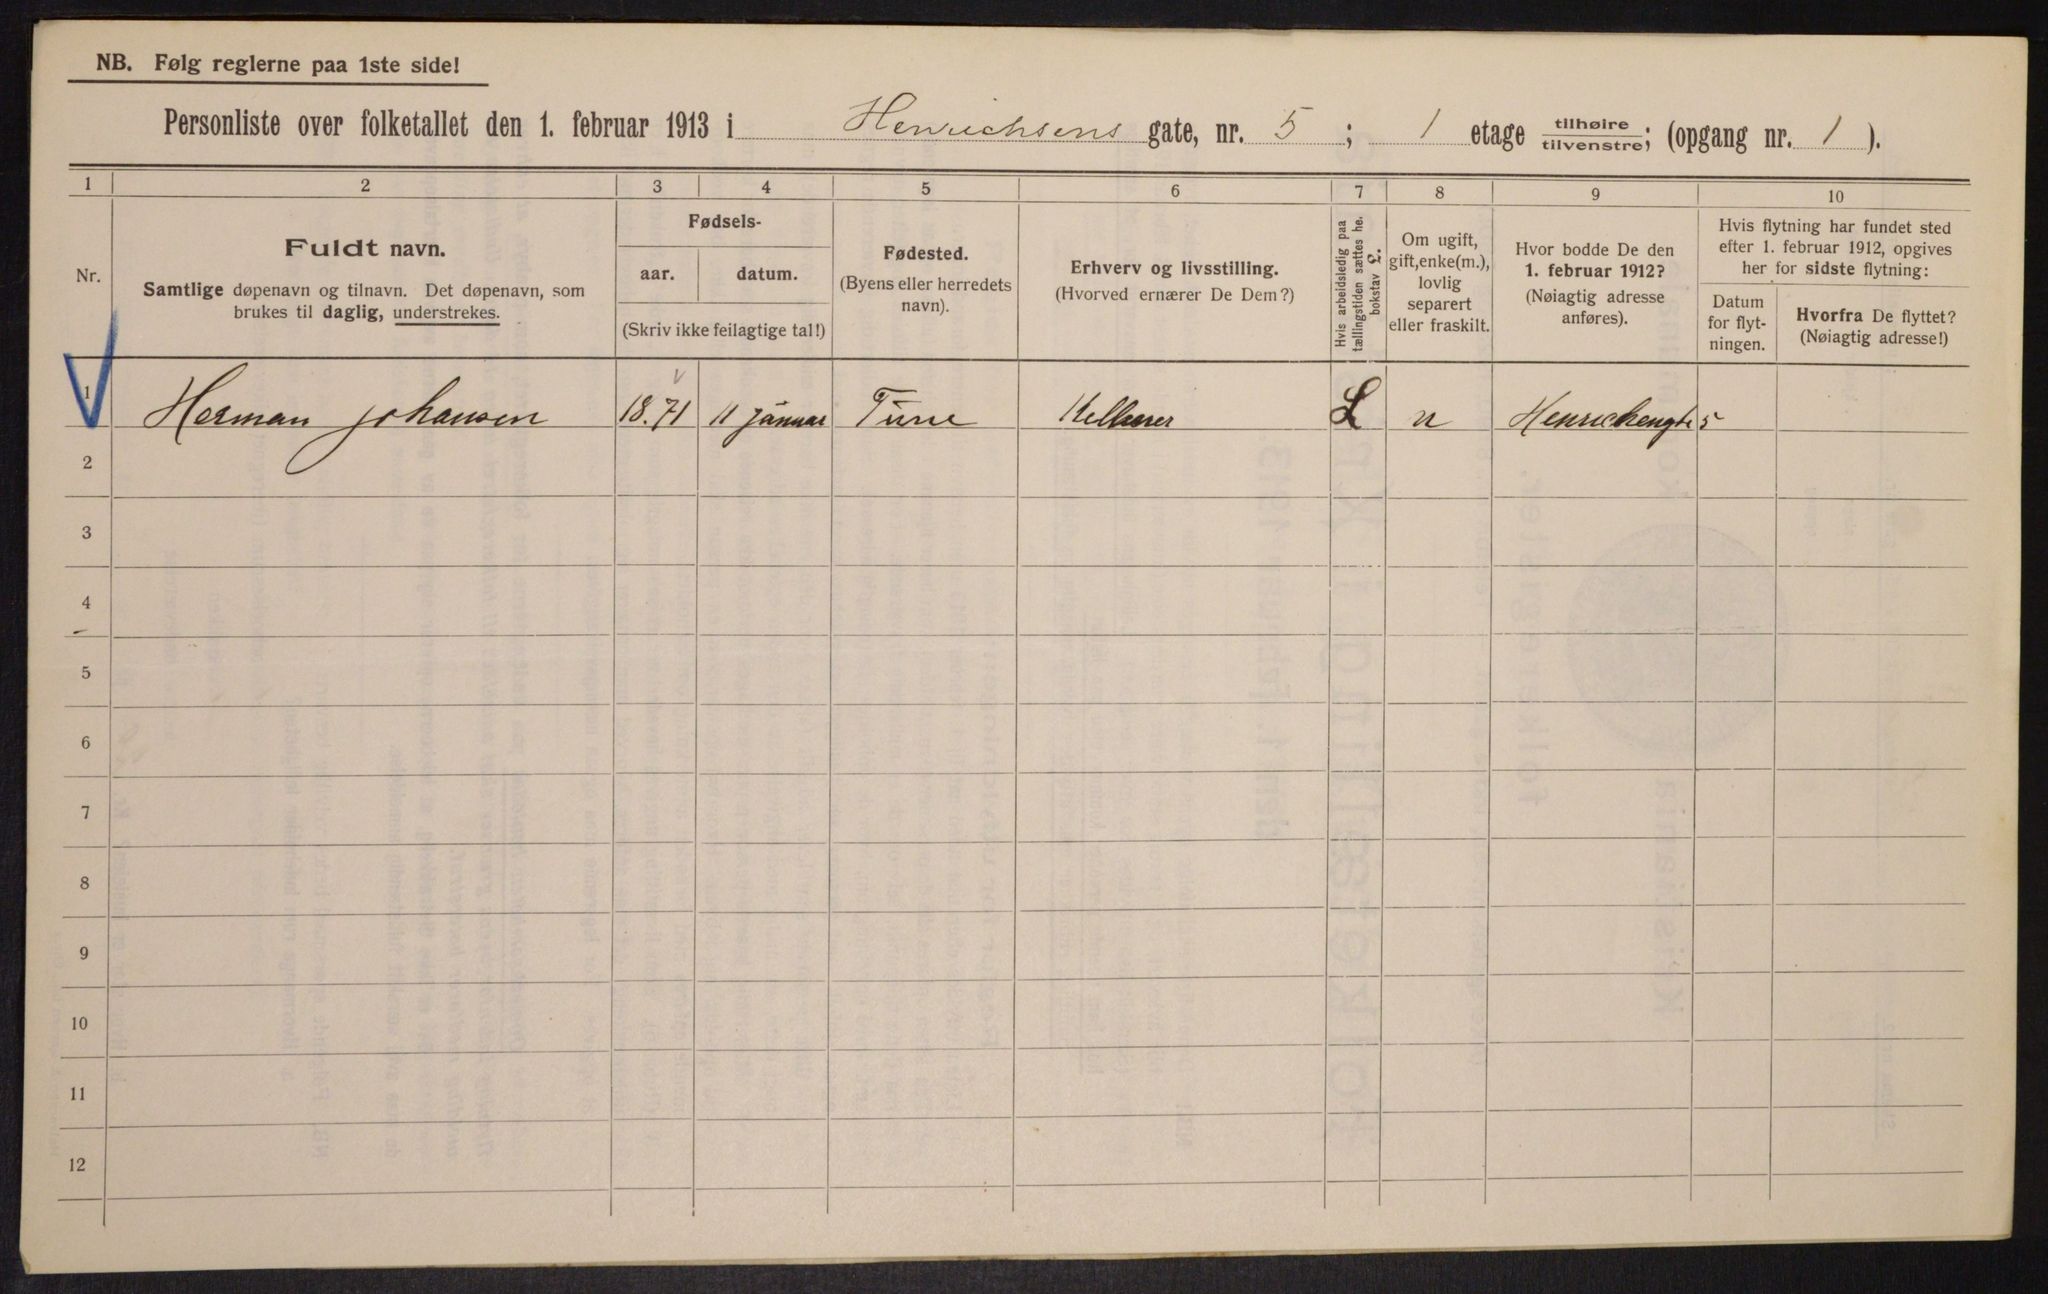 NB. Følg reglerne paa 1ste side!
Personliste over folketallet den 1. februar 1913 i Henrichsens gate, nr. 5; 1 etage tilhøire/tilvenstre; (opgang nr. 1).
1 2 3 4 5 6 7 8 9 10
Nr.
Fuldt navn.
Samtlige døpenavn og tilnavn. Det døpenavn, som
brukes til daglig, understrekes.
Fødsels-
aar. datum.
(Skriv ikke feilagtige tal!)
Fødested.
(Byens eller herredets
navn).
Erhverv og livsstilling.
(Hvorved ernærer De Dem?)
Hvis arbeidsledig paa
tællingstiden sættes he.
bokstav L.
Om ugift,
gift, enke(m.),
lovlig
separert
eller fraskilt.
Hvor bodde De den
1. februar 1912?
(Nøiagtig adresse
anføres).
Hvis flytning har fundet sted
efter 1. februar 1912, opgives
her for sidste flytning:
Datum
for flyt-
ningen.
Hvorfra De flyttet?
(Nøiagtig adresse!)
1 Herman Johansen 18.71 11 januar Tune Kellner L u Henrichengt 5
2
3
4
5
6
7
8
9
10
11
12